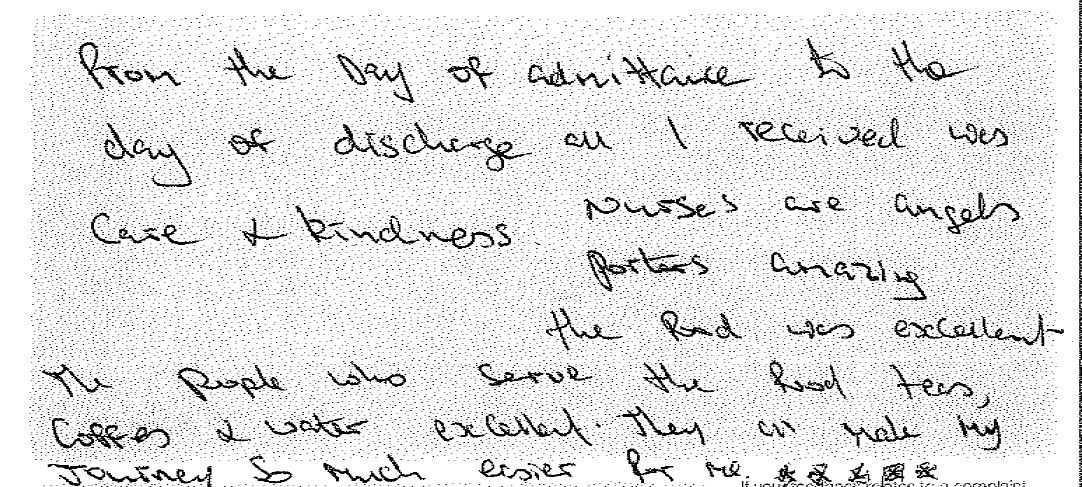 From the Day of admittance to the
day of discharge all I received was
Care & kindness.
Nurses are angels
porters amazing
the food was excellent
The people who serve the food teas,
Coffees & water excellent. They all made my
Journey so much easier for me. ☆☆☆☆☆